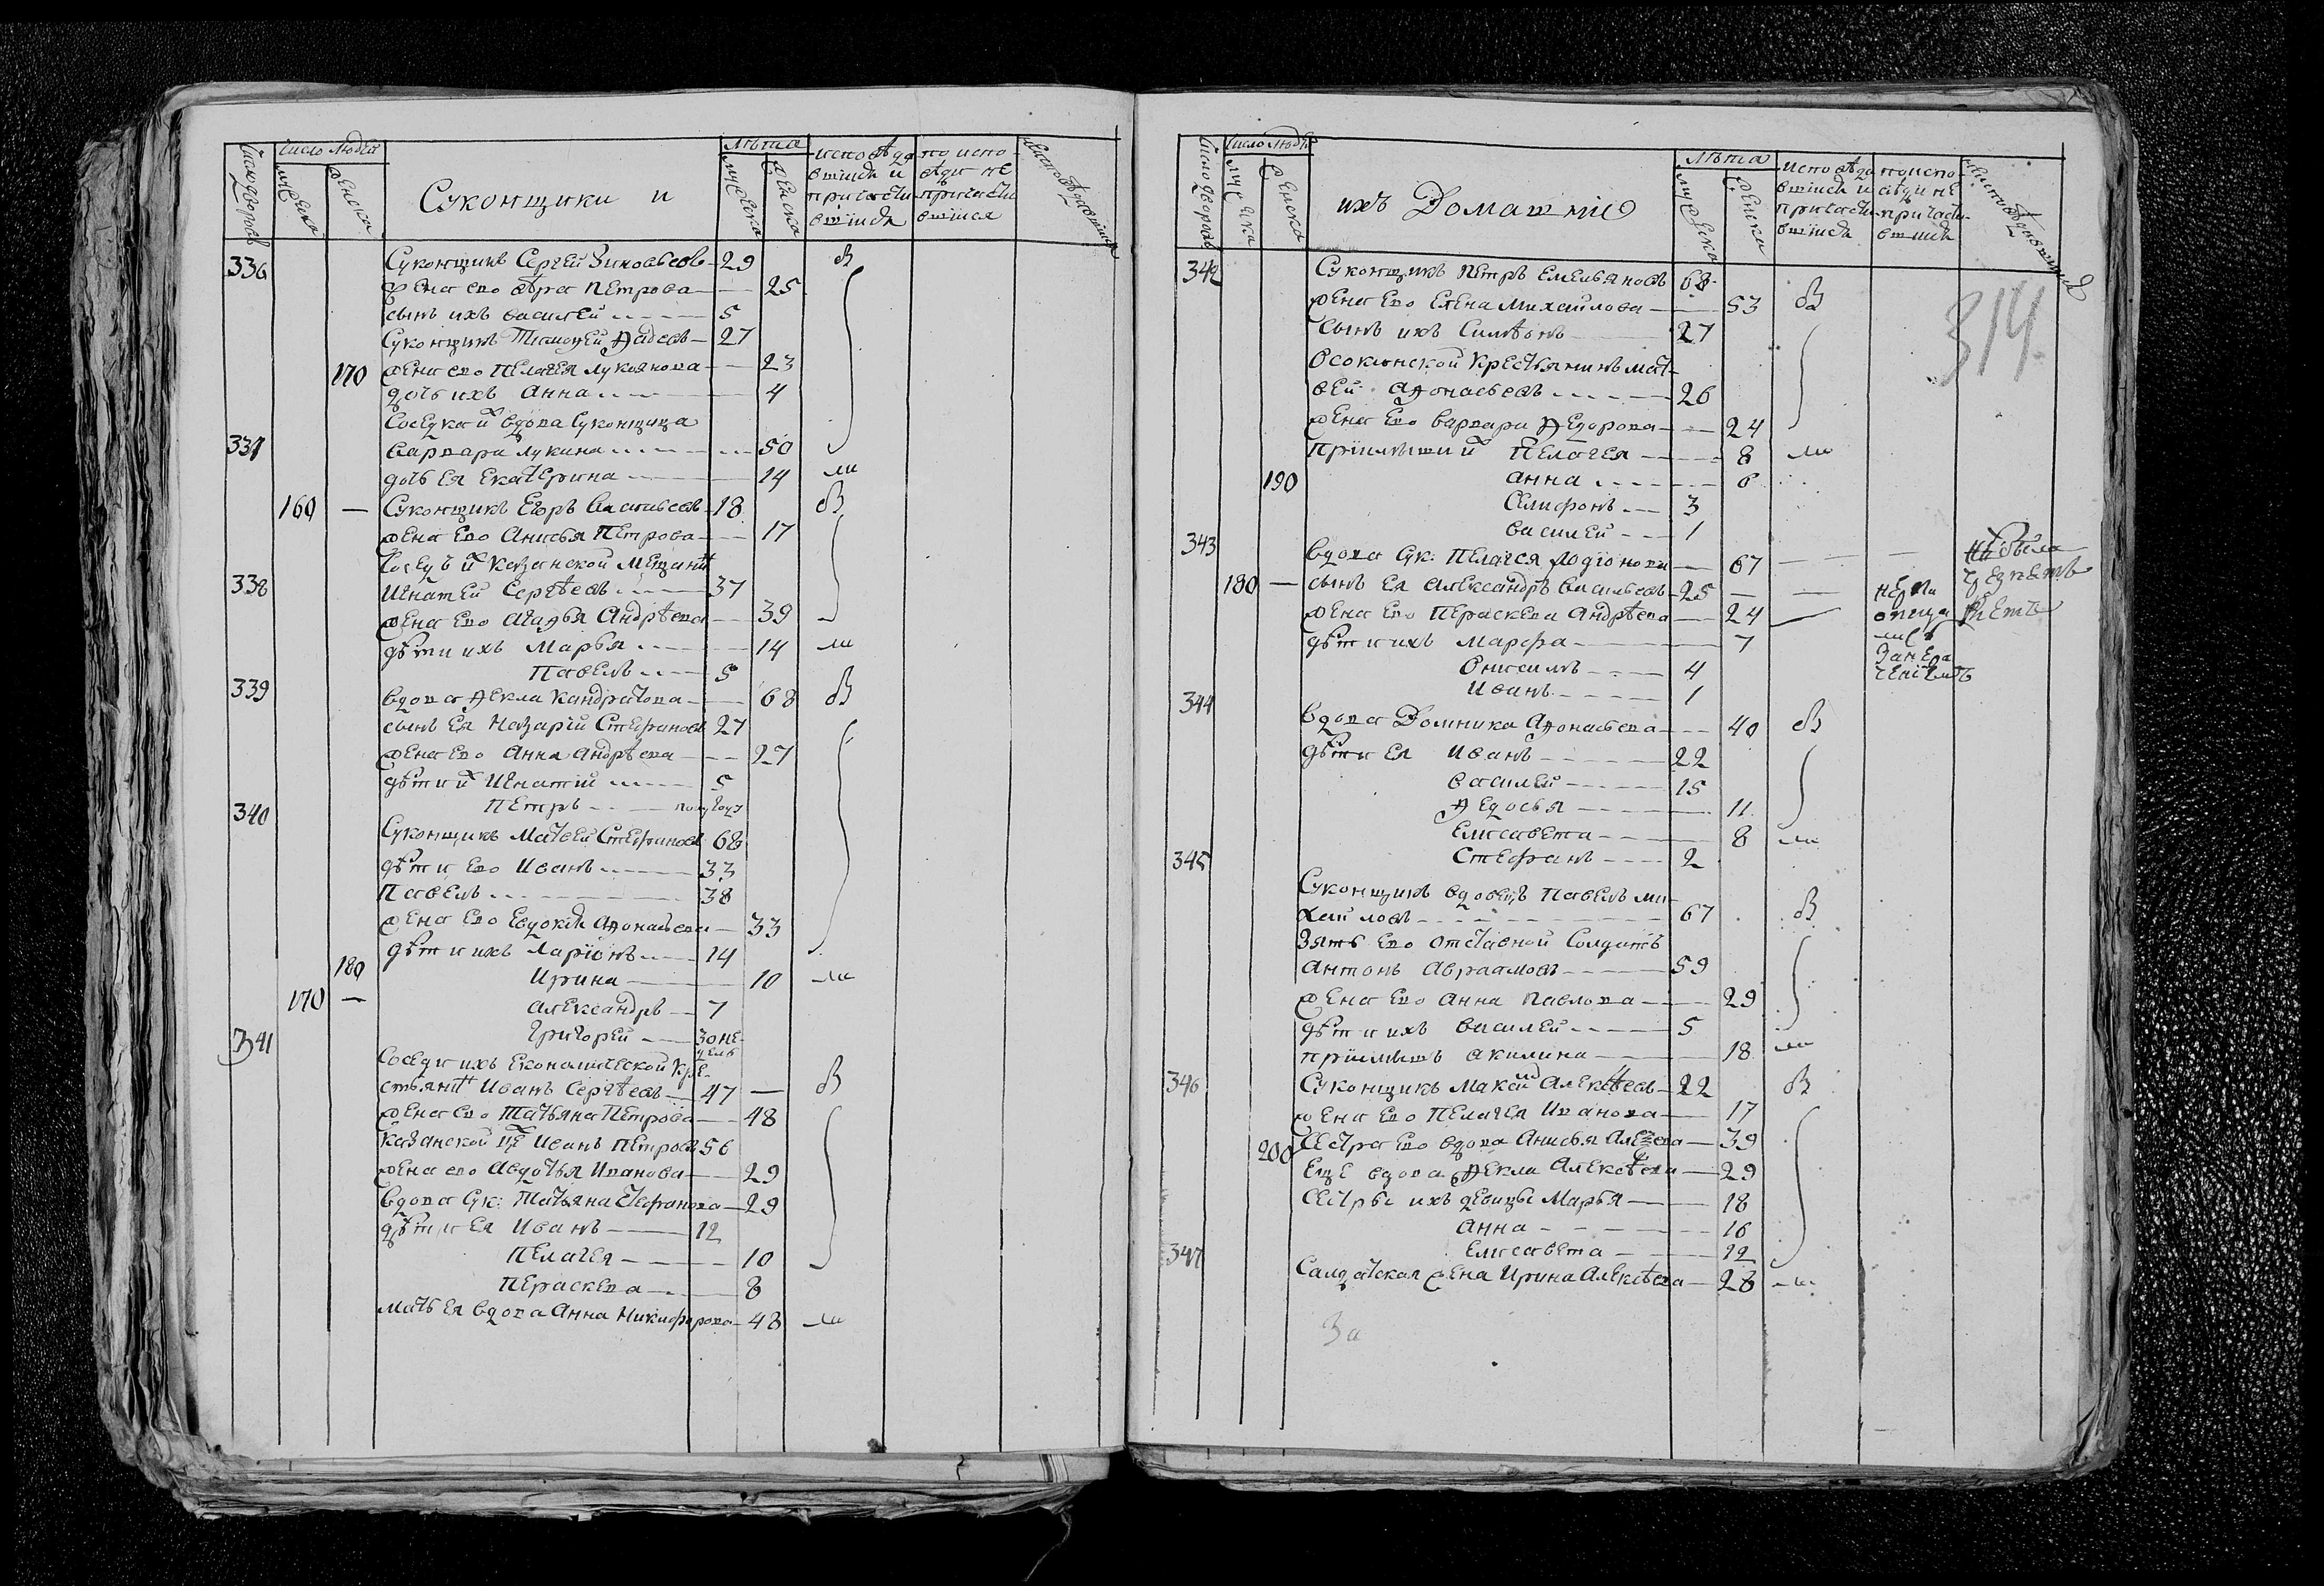 Число дворовъ
Число людей
мужеска
женска
Суконщики и
Лѣта
мужеска
женска
исповѣда
вшіися и
причасти
вшіися
по испо-
вѣди не
причасти
вшіися
336 Суконщикъ Сергей Зиновьевъ 29 в
жена ево Ѳѣра Петрова 25
сынъ ихъ Василей 5
Суконщикъ Тимоѳей Ѳадѣевъ 27
170 жена ево Пелагея Лукоянова 23
дочь ихъ Анна 4
Соседка их вдова Суконщица
337 Варвара Лукина 50
дочь ея Екатерина 14 ли
160 — Суконщикъ Егоръ Васильевъ 18 в
жена ево Анисья Петрова 17
Соседъ их Казанской мещанинъ
338 Игнатей Сергѣевъ 37
жена ево Агаѳья Андрѣева 39
дѣти ихъ Марья 14 ли
Павелъ 5
339 вдова Ѳекла Кандратова 68 в
сынъ ея Назарій Стефановъ 27
жена ево Анна Андрѣева 27
дѣти их Игнатій 5
Петръ полугоду
340 Суконщикъ Матвей Стефановъ 68
дѣти ево Иванъ 33
Павелъ 38
жена ево Евдокія Аѳонасьева 33
дѣти ихъ Ларіонъ 14
180 Ирина 10 ли
170 — Александръ 7
Григорей 30 не-
дель
341 Соседи ихъ Економической кре-
стьянинъ Иванъ Сергѣевъ 47 — в
жена ево Татьяна Петрова 48
Казанской Иванъ Петровъ 56
жена ево Авдотья Иванова 29
вдова Сук: Татьяна Стефанова 29
дѣти ея Иванъ 12
Пелагея 10
Параскева 8
мать ея вдова Анна Никифорова 48 ли
Число дворовъ
Число людей
мужеска
женска
ихъ Домашніе
Лѣта
мужеска
женска
исповѣда
вшіися и
причасти
вшіися
по испо-
вѣди не
причасти-
вшіися
314
342 Суконщикъ Петръ Емельяновъ 68
жена ево Елена Михайлова 53 в
Сынъ ихъ Симѣонъ 27
Осокинской крестьянинъ Мат-
вей Аѳонасьевъ 26
жена ево Варвара Ѳедорова 24
пріимыши их Пелагея 8 ли
190 Анна 6
Селифонъ 3
Василей 1
343 вдова Сук: Пелагея Родіонова 67 — —
180 — сынъ ея Александръ Васильевъ 25 — —
жена ево Параскева Андрѣева 24
дѣти ихъ Марфа 7
Онисимъ 4
Иванъ 1
344 вдова Домника Аѳонасьева 40 в
дѣти ея Иванъ 22
Василей 15
Ѳедосья 11
Елисавета 8 ли
Стефанъ 2
345 Суконщикъ вдовецъ Павелъ Ми-
хайловъ 67 в
Зять ево отставной Солдатъ
Антонъ Авраамовъ 59
жена ево Анна Павлова 29
дѣти ихъ Василей 5
пріимышъ Акилина 18 ли
346 Суконщикъ Макаи Алексѣевъ 22 в
жена ево Пелагея Иванова 17
200 Сестра ево вдова Анисья Алексеева 39
Еще вдова Ѳекла Алексѣева 29
Сестры ихъ девицы Марья 18
Анна 16
Елисавета 12
347 Салдатская жена Ирина Алексѣева 28 ли
За